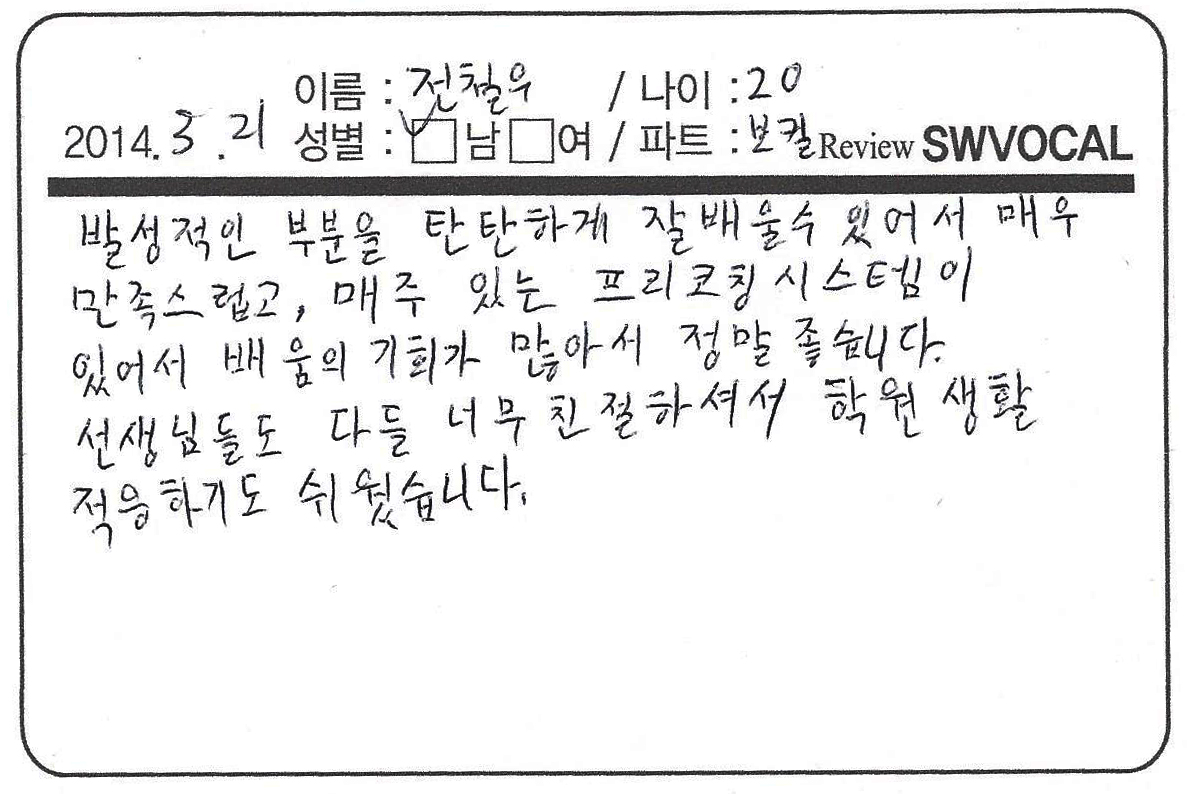 이름 : 전철우 / 나이 : 20
2014. 3. 21 성별 : ☑남 □여 / 파트 : 보컬 Review SWVOCAL
발성적인 부분을 탄탄하게 잘배울수 있어서 매우
만족스럽고, 매주 있는 프리코칭시스템이
있어서 배움의 기회가 많아서 정말 좋습니다.
선생님들도 다들 너무 친절하셔서 학원 생활
적응하기도 쉬웠습니다.